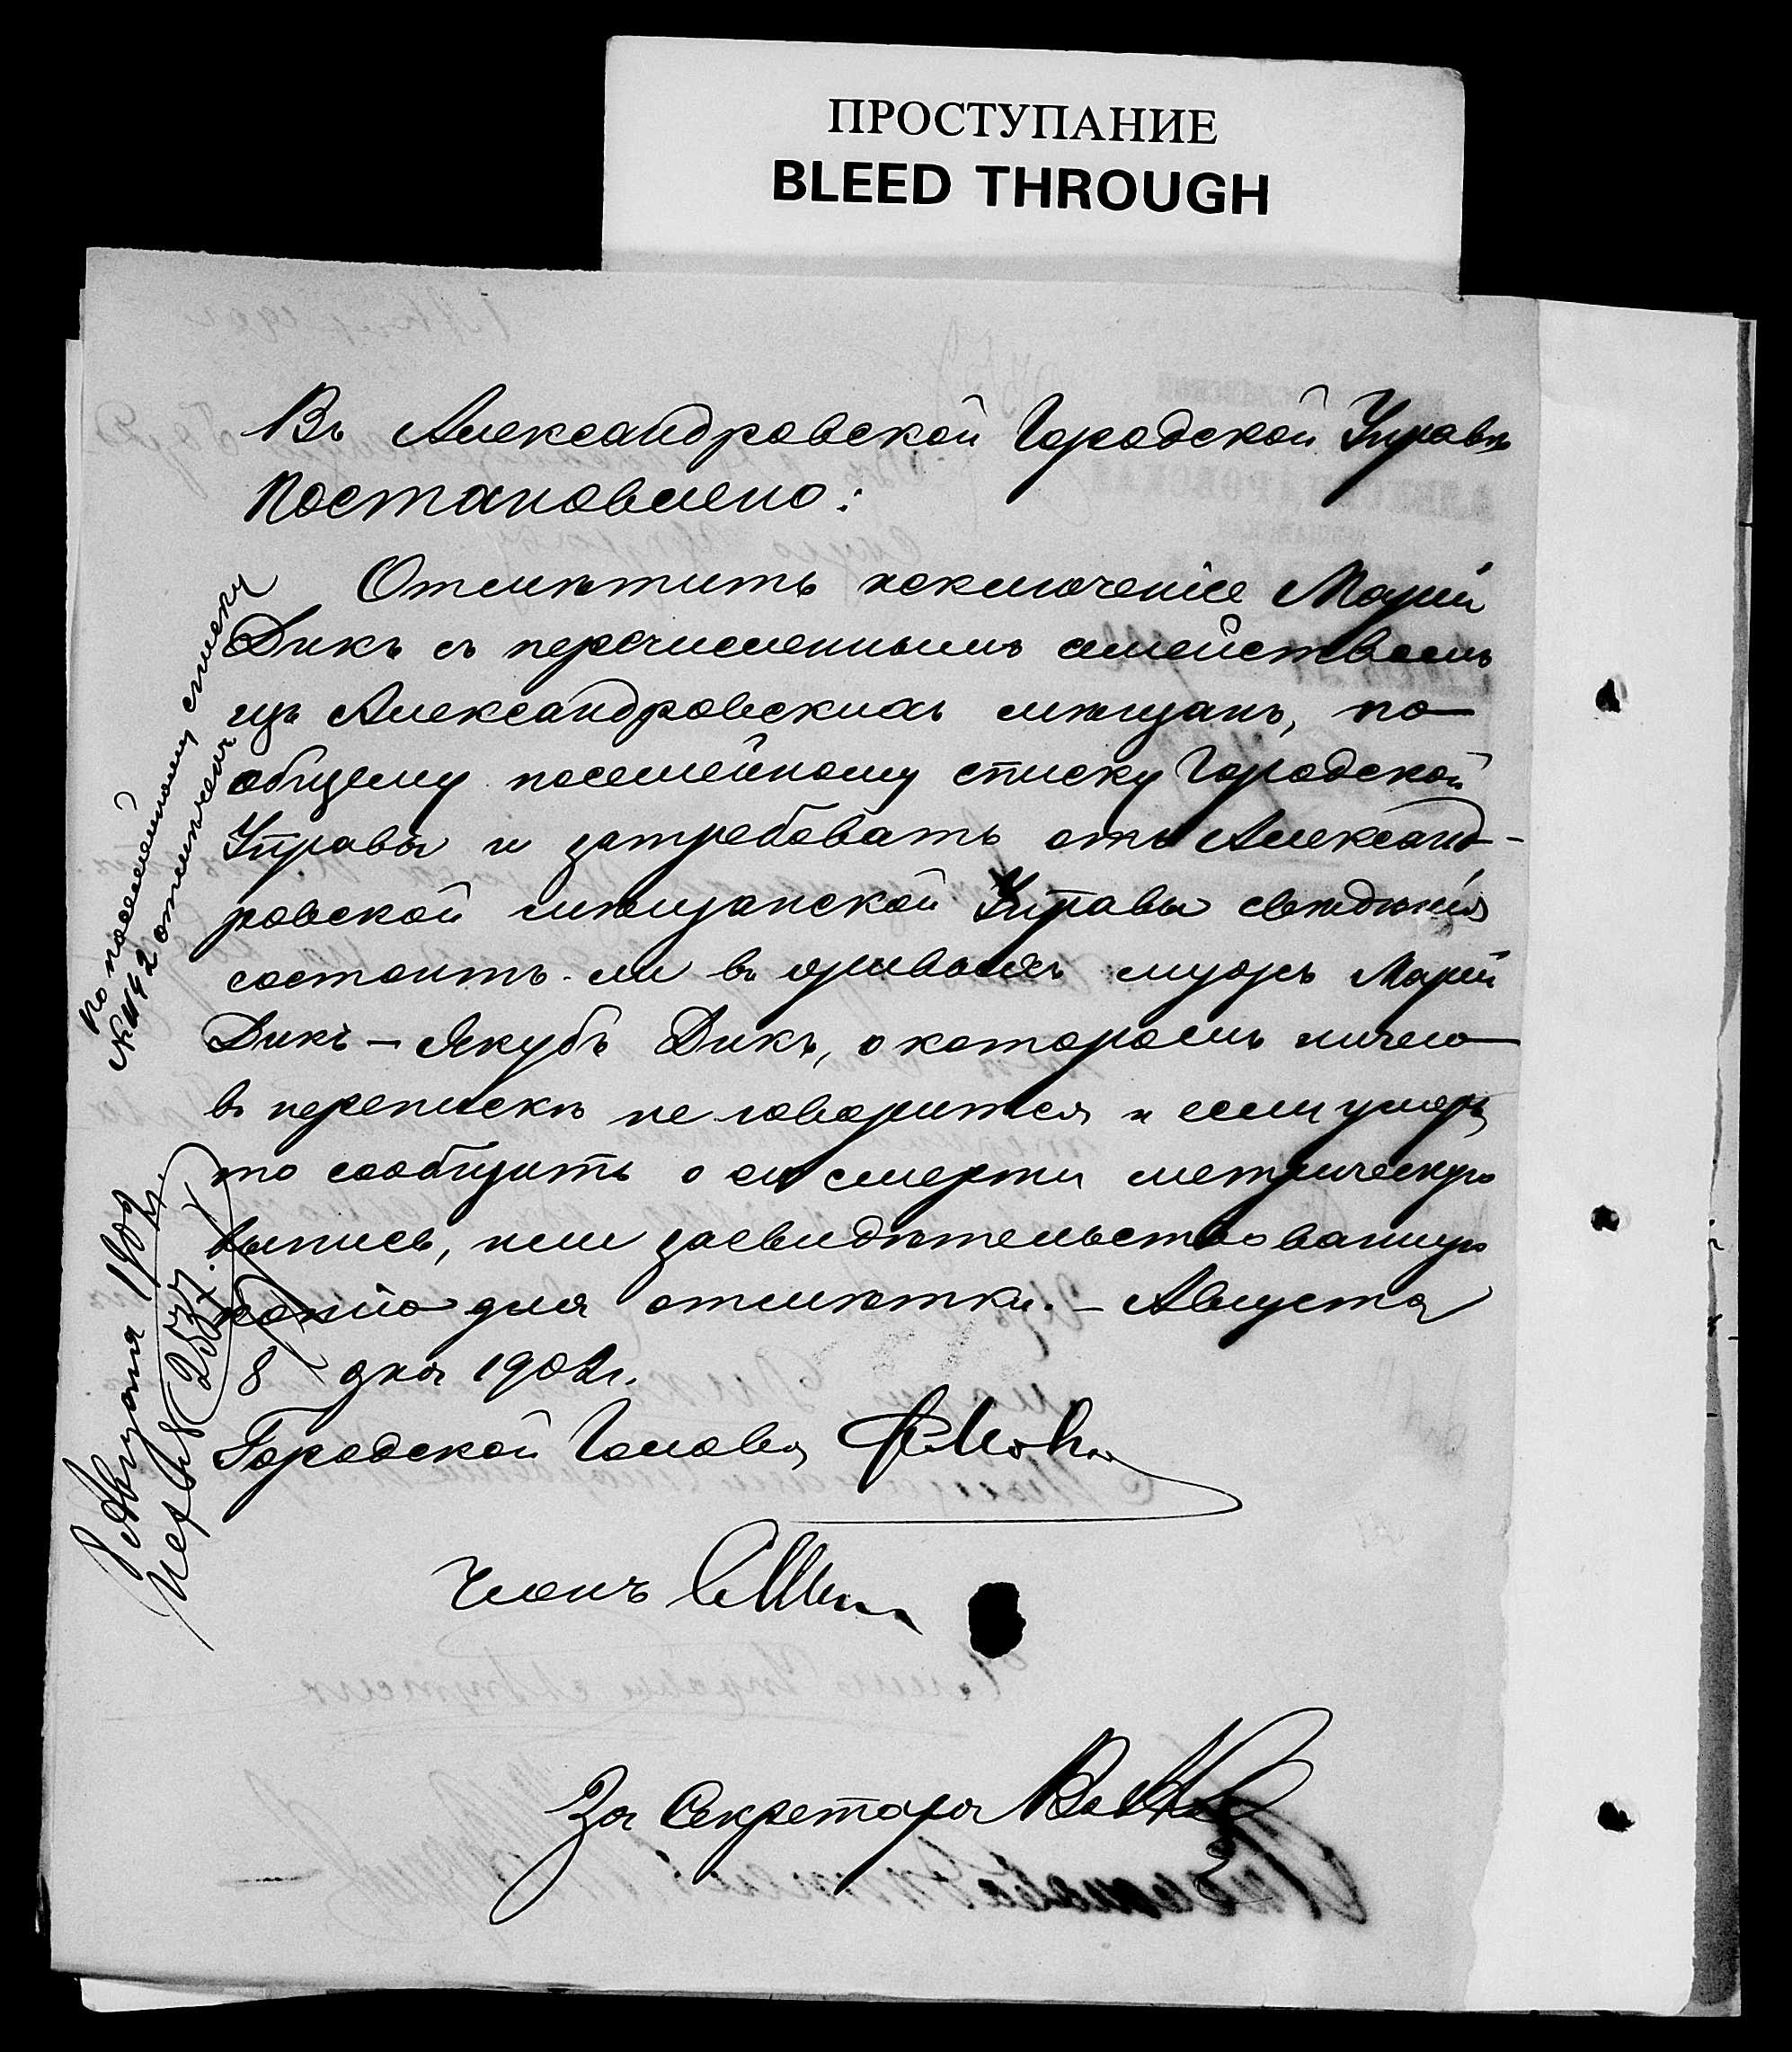 ПРОСТУПАНИЕ
BLEED THROUGH
Въ Александровской Городской Управѣ
постановлено:
Отмѣтить исключеніе Маріи
Дикъ съ перечисленнымъ семействомъ
изъ Александровскихъ мѣщанъ, по
общему посемейному списку Городской
Управы и затребовать отъ Александ-
ровской мѣщанской Управы свѣдѣнія
состоитъ-ли въ живыхъ мужъ Маріи
Дикъ — Якубъ Дикъ, о которомъ ничего
въ перепискѣ не говорится и если умеръ,
то сообщить о его смерти метрическую
выпись, или засвидѣтельствованную
копію для отмѣтки. — Августа
8 дня 1902 г.
Городской Голова
Членъ
За Секретаря
По посемейному списку
№ 1142 отмѣчено
Августа 1902 г.
№ 2537.